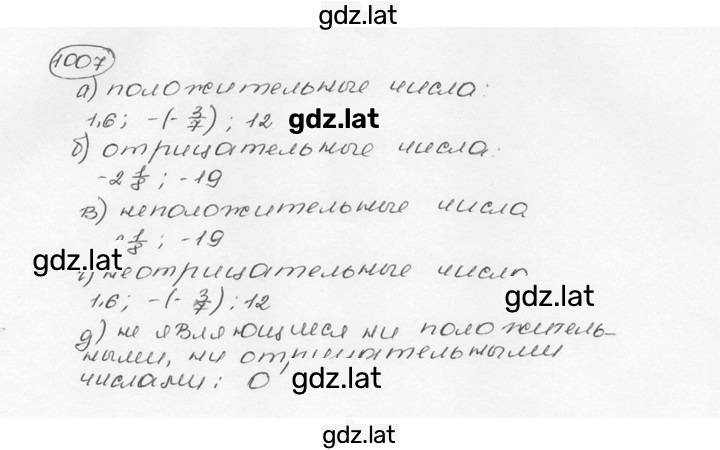 gdz.lat
1007
а) положительные числа:
1,6; -(-3/7); 12 gdz.lat
б) отрицательные числа:
-2 1/8; -19
в) неположительные числа
1/8; -19
gdz.lat
неотрицательные числа
1,6; -(-3/7); 12 gdz.lat
д) не являющиеся ни положитель-
ными, ни отрицательными
числами: 0 gdz.lat
gdz.lat